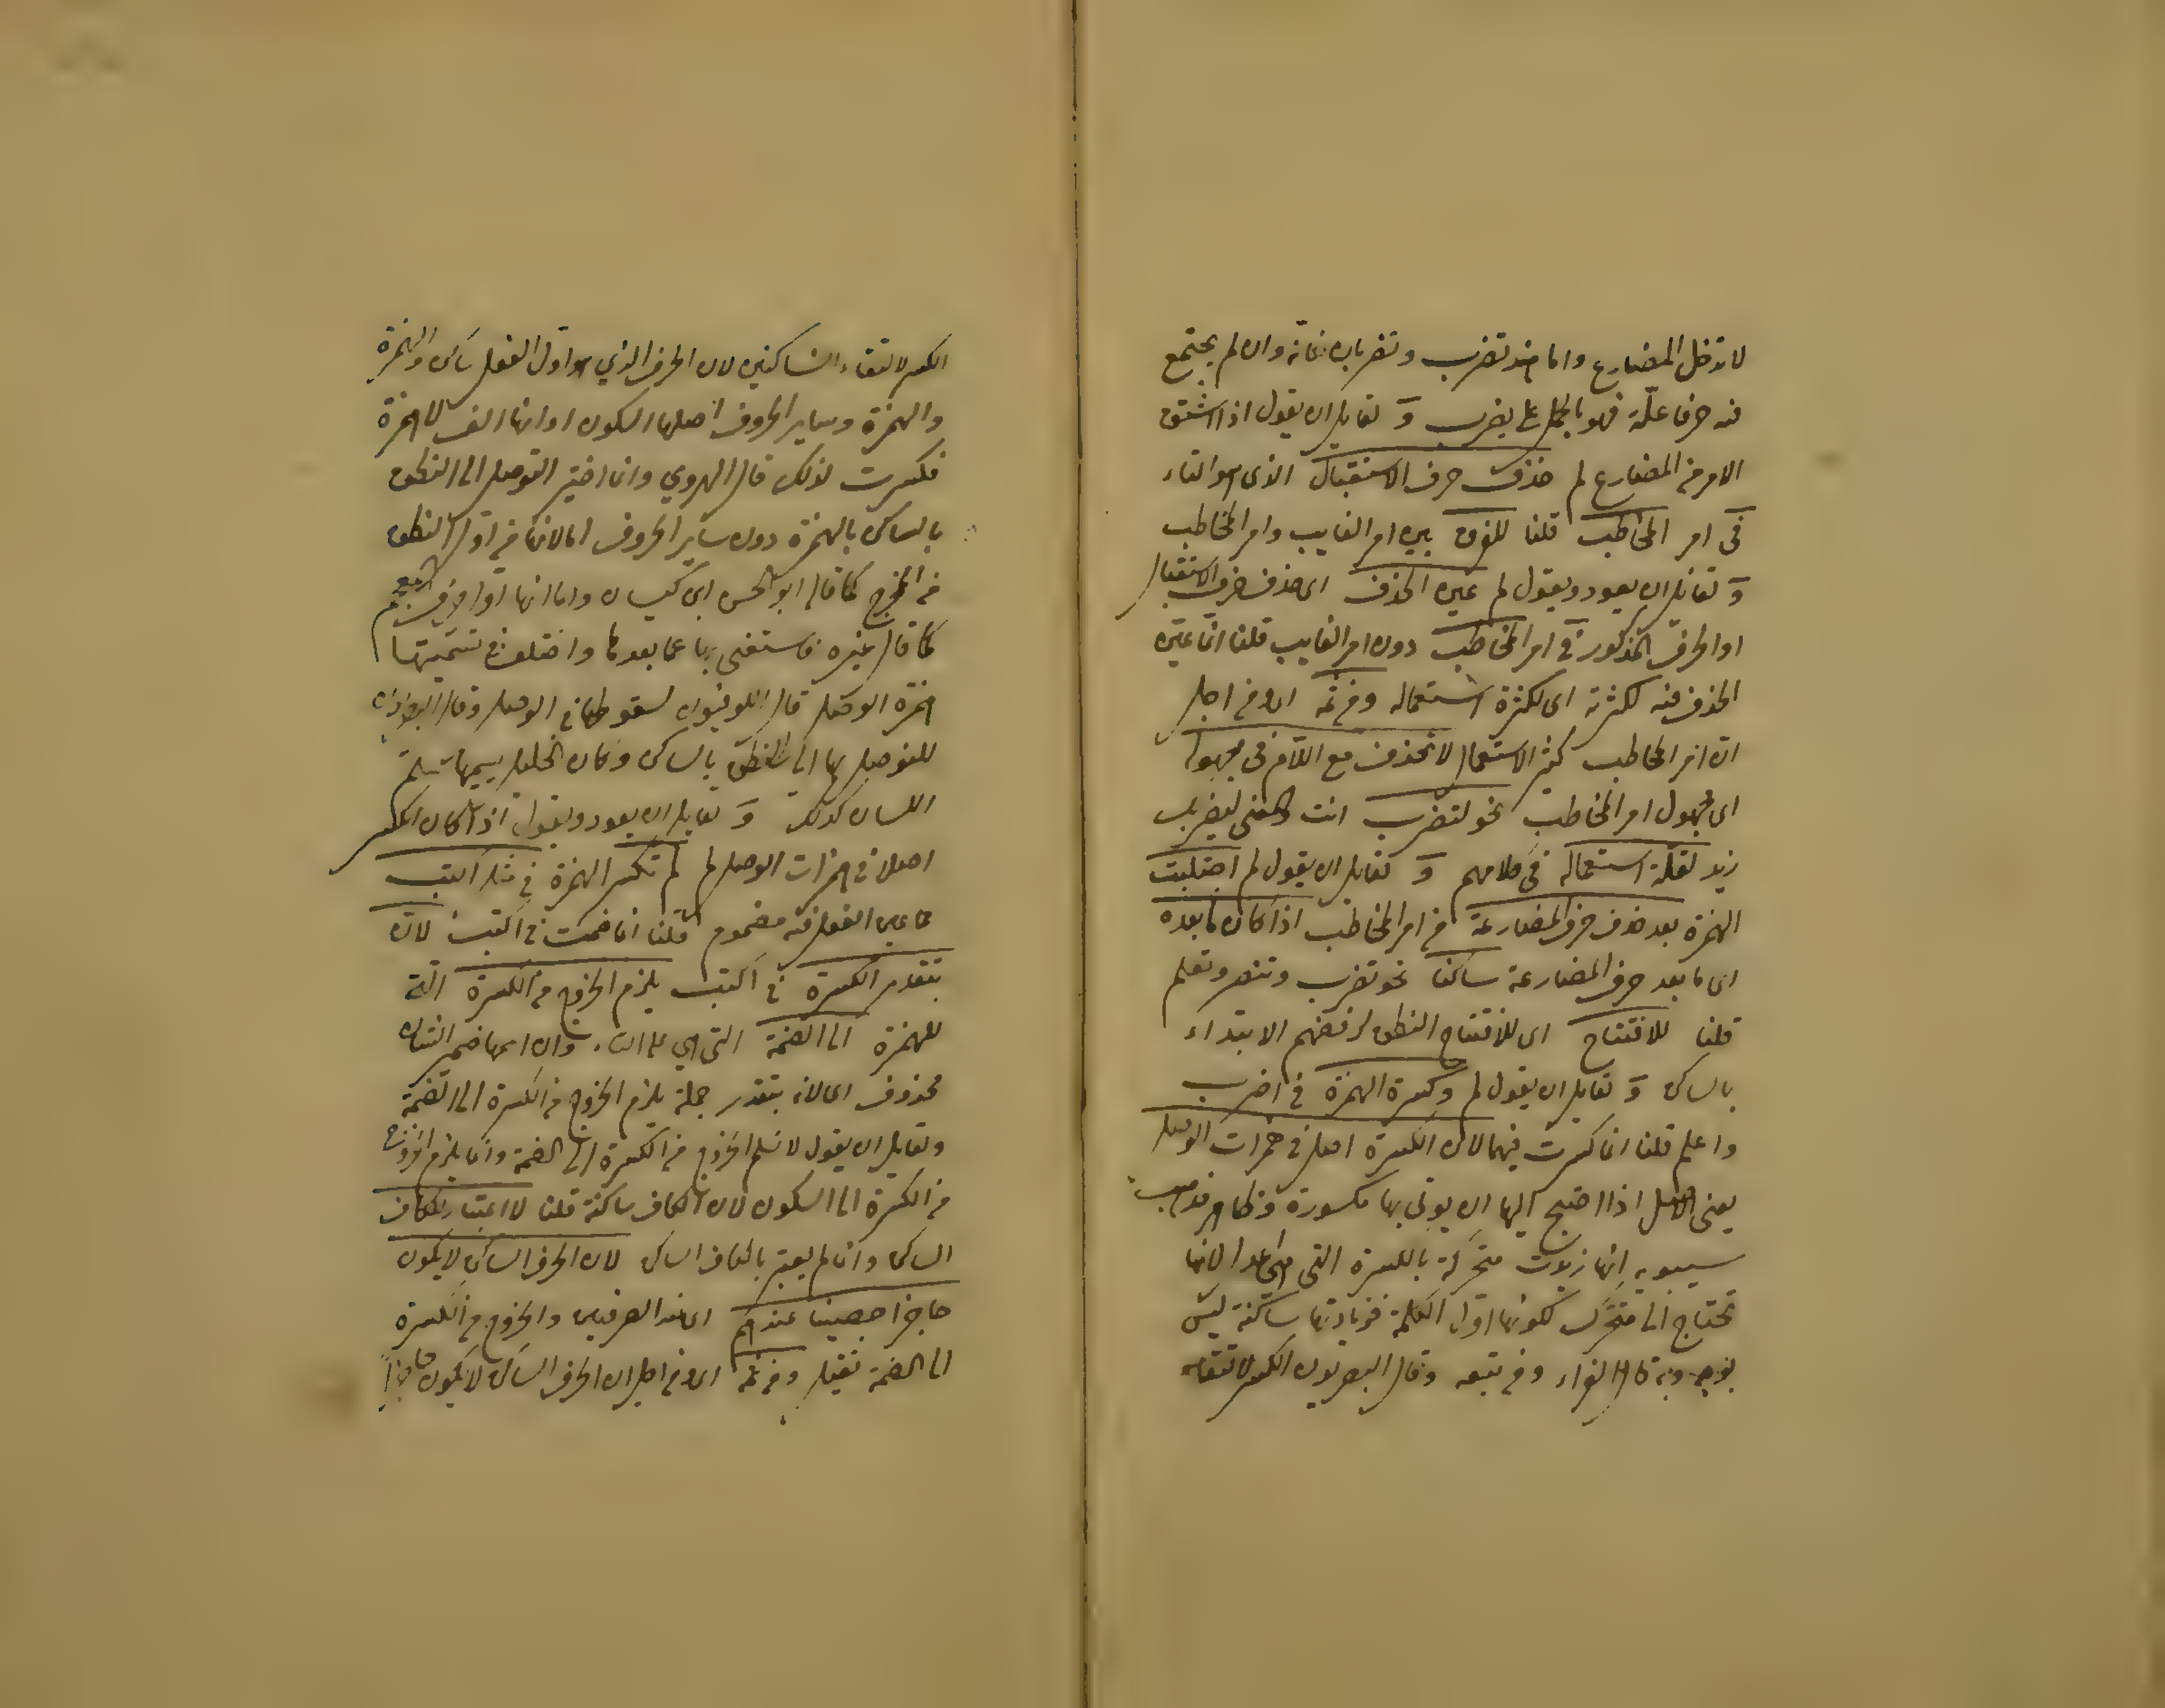 لا تدخل المضارع واما عند تضرب وتضربان فانه وان لم يجتمع
فيه حرفا علة فهو بالحمل على يضرب و لقايل ان يقول اذا اشتق
الامر من المضارع لم حذف حرف الاستقبال الذي هو التاء
في امر المخاطب قلنا للفرق بين امر الغايب وامر المخاطب
و لقايل ان يعود ويقول لم عين الحذف اي حذف حرف الاستقبال
او الحرف المذكور في امر المخاطب دون امر الغايب قلنا انما عين
الحذف فيه لكثرته اي لكثرة استعماله ومن ثمه اي ومن اجل
ان امر المخاطب كثير الاستعمال لا تحذف مع اللام في مجهوله
اي مجهول امر المخاطب نحو لتضرب انت والمعنى ليضربك
زيد لقلة استعماله في كلامهم و لقايل ان يقول لم اجتلبت
الهمزة بعد حذف حرف المضارعة من امر المخاطب اذا كان ما بعده
اي ما بعد حرف المضارعة ساكنا نحو تضرب وتنصر وتعلم
قلنا للافتتاح اي للافتتاح النطق لرفضهم الابتداء
بالساكن و لقايل ان يقول لم وكسرة الهمزة في اضرب
واعلم قلنا انما كسرت فيهما لان الكسرة اصل في همزات الوصل
يعني الاصل اذا احتيج اليها ان يوتى بها مكسورة وظاهر مذهب
سيبويه انها زيدت متحركة بالكسرة التي هي اعدا لانها
تحتاج الى متحرك لكونها اول الكلمة فزيادتها ساكنة ليس
بوجه وبه قال الفراء ومن تبعه وقال البصريون الكسر لالتقاء
الكسر لالتقاء الساكنين لان الحرف الذي هو اول الفعل ساكن والهمزة
والهمزة وساير الحروف اصلها السكون اوانها الف لا همزة
فكسرت لذلك قال الهروي وانما اختير التوصل الى النطق
بالساكن بالهمزة دون ساير الحروف اما لانها من اول النطق
من المخرج كما قال ابو الحسن ابن كيسان واما انها اول حروف المعجم
كما قال غيره فاستغنى بها عما بعدها واختلف في تسميتها
همزة الوصل قال الكوفيون لسقوطها في الوصل وقال البصريون
للتوصل بها الى النطق بالساكن وكان الخليل يسميها سلم
اللسان كذلك و لقايل ان يعود ويقول اذا كان الكسر
اصلا في همزات الوصل لم لم تكسر الهمزة في مثل اكتب
مما عين الفعل منه مضموم قلنا انما ضمت في اكتب لانه
بتقدير الكسرة في اكتب يلزم الخروج من الكسرة التي
للهمزة الى الضمة التي هي على التاء وان اسمها ضمير الشان
محذوف اي لانه بتقدير جملة يلزم الخروج من الكسرة الى الضمة
ولقايل ان يقول لا نسلم الخروج من الكسرة الى الضمة وانما يلزم الخروج
من الكسرة الى السكون لان الكاف ساكنة قلنا لا اعتبار للكاف
الساكن وانما لم يعتبر بالكاف الساكن لان الحرف الساكن لا يكون
حاجزا حصينا عندهم اي عند الصرفيين والخروج من الكسرة
الى الضمة ثقيل ومن ثمه اي ومن اجل ان الحرف الساكن لا يكون حاجزا